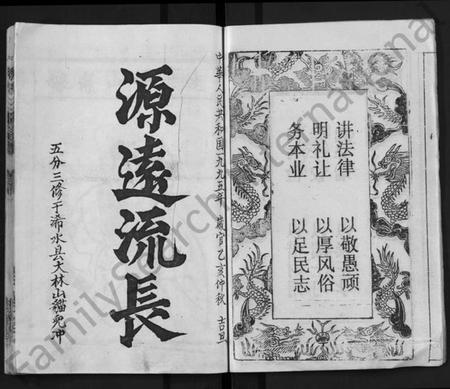 中華人民共和国一九九五年 歲官乙亥仲秋 吉旦
源遠流長
五分三修于浠水县大林山貓儿冲
讲法律 以敬愚顽
明礼让 以厚风俗
务本业 以足民志
FamilySearch International